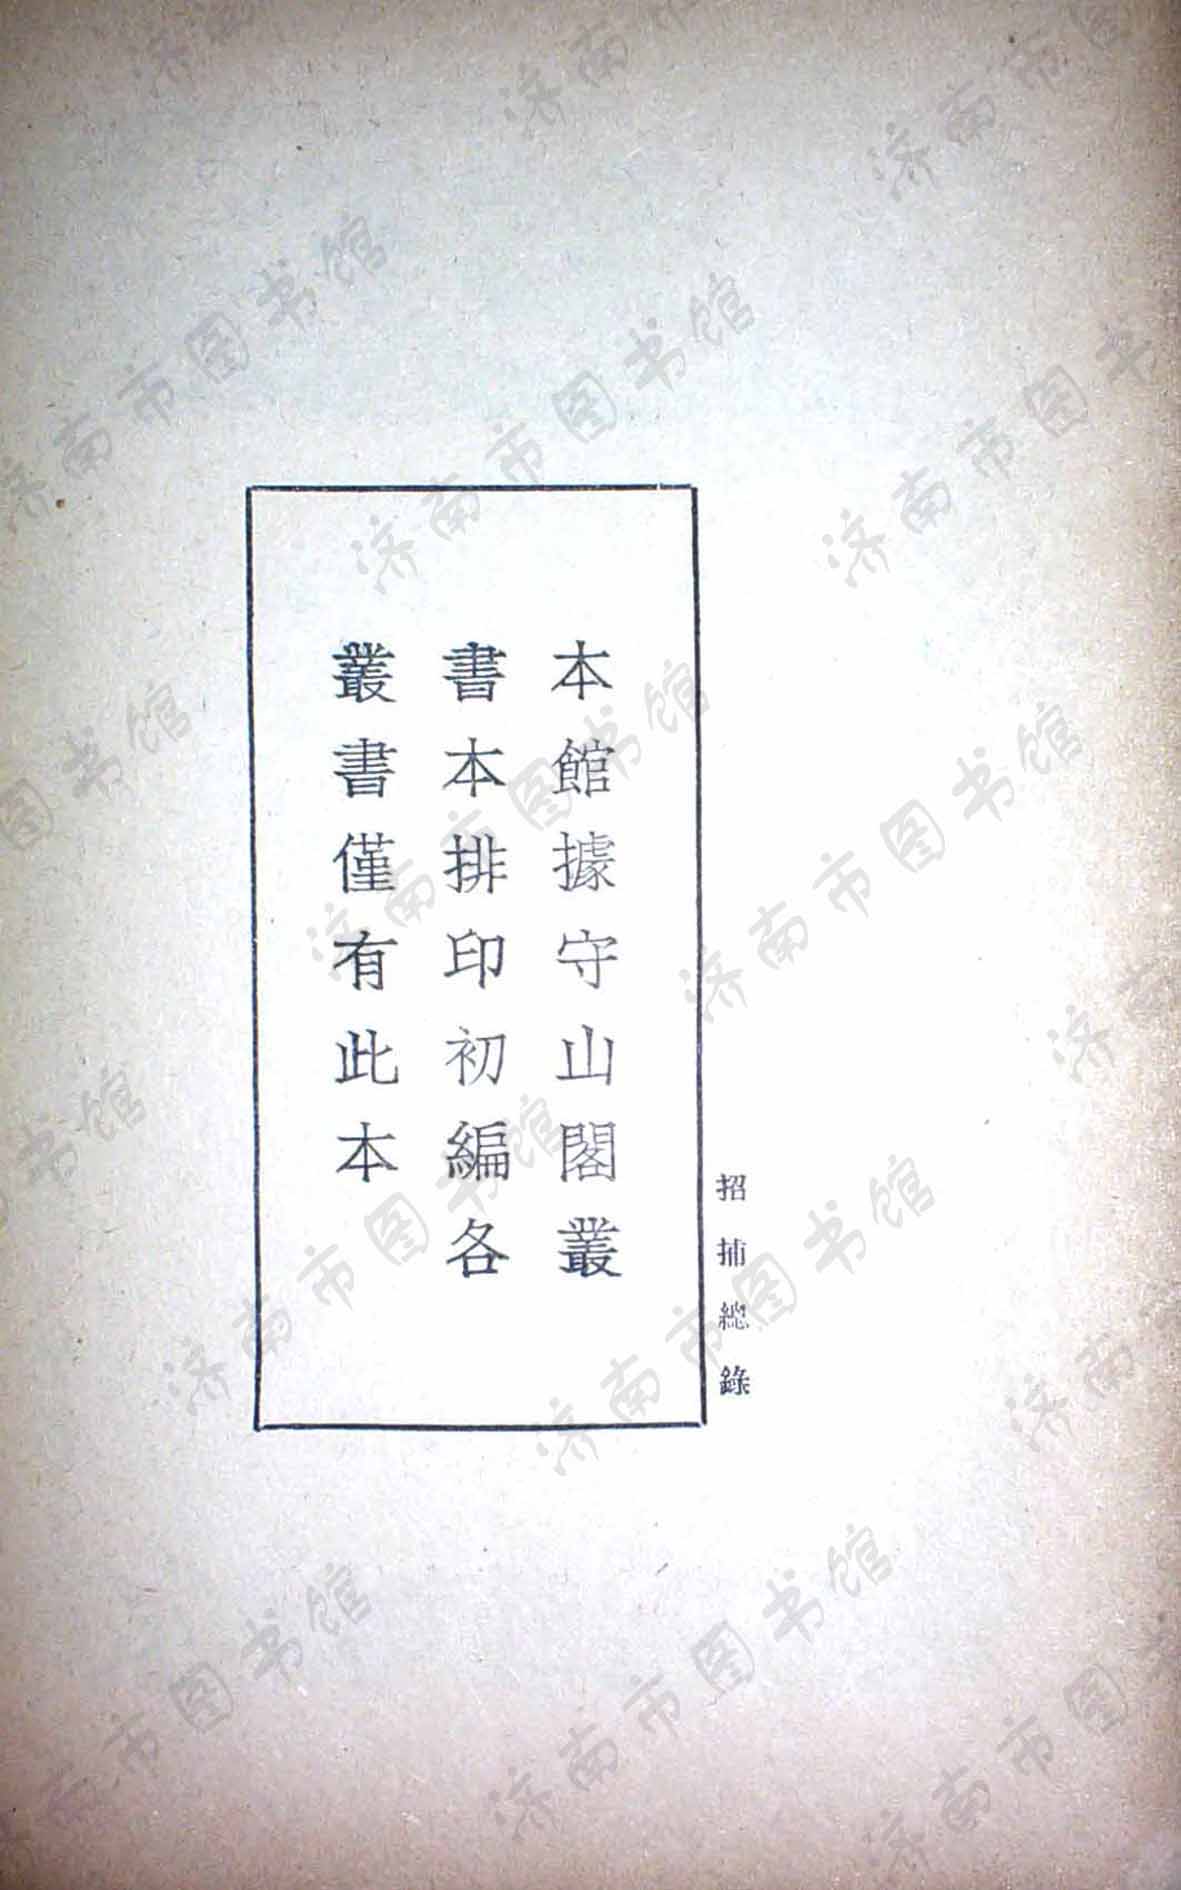 招捕總錄
本館據守山閣叢
書本排印初編各
叢書僅有此本
济南市图书馆